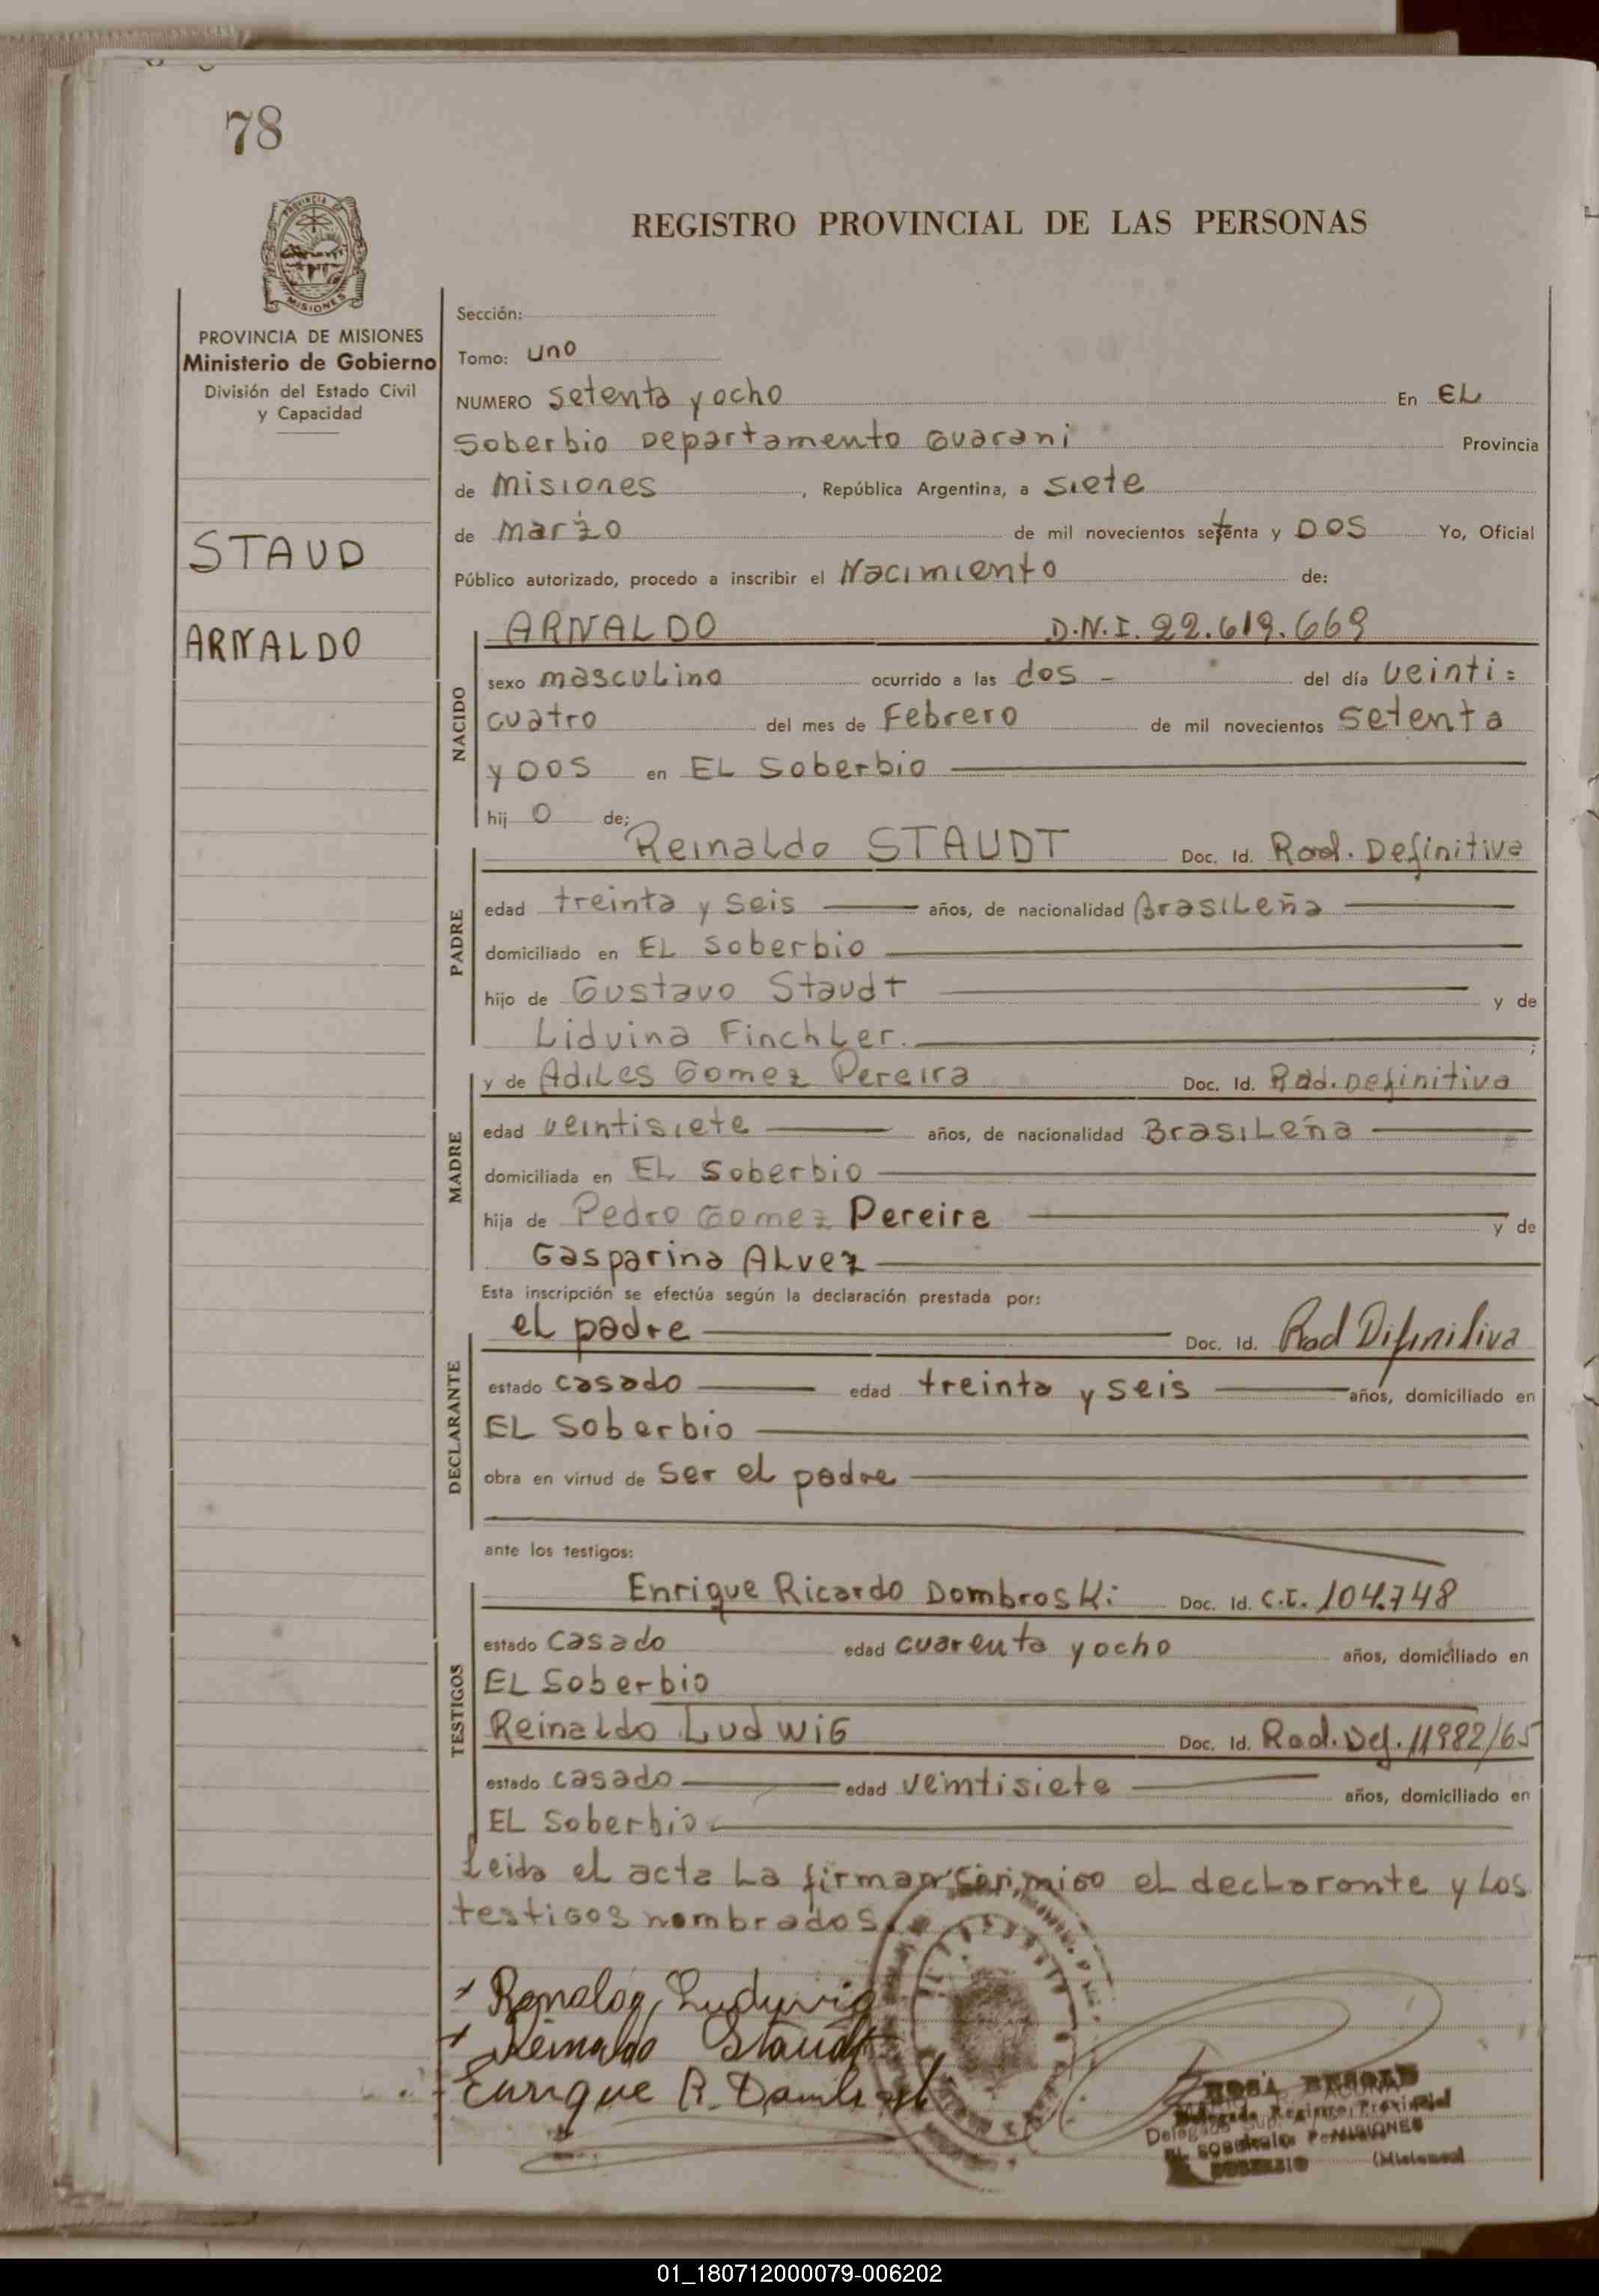 78
REGISTRO PROVINCIAL DE LAS PERSONAS
PROVINCIA DE MISIONES
Ministerio de Gobierno
División del Estado Civil
y Capacidad
STAUD
ARNALDO
Sección:
Tomo: uno
NUMERO setenta y ocho En EL
Soberbio Departamento Guarani Provincia
de Misiones, República Argentina, a siete
de marzo de mil novecientos setenta y DOS Yo, Oficial
Público autorizado, procedo a inscribir el Nacimiento de:
NACIDO
ARNALDO D.N.I. 22.619.669
sexo masculino ocurrido a las dos - del día veinti=
cuatro del mes de Febrero de mil novecientos setenta
y DOS en EL Soberbio
hijo de;
PADRE
Reinaldo STAUDT Doc. Id. Rad. Definitiva
edad treinta y seis años, de nacionalidad Brasileña
domiciliado en EL Soberbio
hijo de Gustavo Staudt y de
Liduina Finchler.;
MADRE
y de Adiles Gomez Pereira Doc. Id. Rad. Definitiva
edad veintisiete años, de nacionalidad Brasileña
domiciliada en EL Soberbio
hija de Pedro Gomez Pereira y de
Gasparina Alvez
Esta inscripción se efectúa según la declaración prestada por:
DECLARANTE
el padre Doc. Id. Rad Difinitiva
estado casado edad treinta y seis años, domiciliado en
EL Soberbio
obra en virtud de ser el padre
ante los testigos:
TESTIGOS
Enrique Ricardo Dombroski Doc. Id. C.I. 104.748
estado casado edad cuarenta y ocho años, domiciliado en
EL Soberbio
Reinaldo Ludwig Doc. Id. Rad. Def. 11982/65
estado casado edad veintisiete años, domiciliado en
EL Soberbio
Leida el acta la firman conmigo el declarante y los
testigos nombrados
Ludwig
Reinaldo Staudt
Enrique R.
01_180712000079-006202